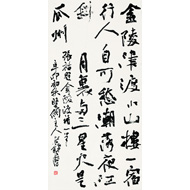 金陵津渡小山樓一宿
行人自可愁潮落夜江
斜月裏两三星火是
瓜州
張祜題金陵渡詩一首